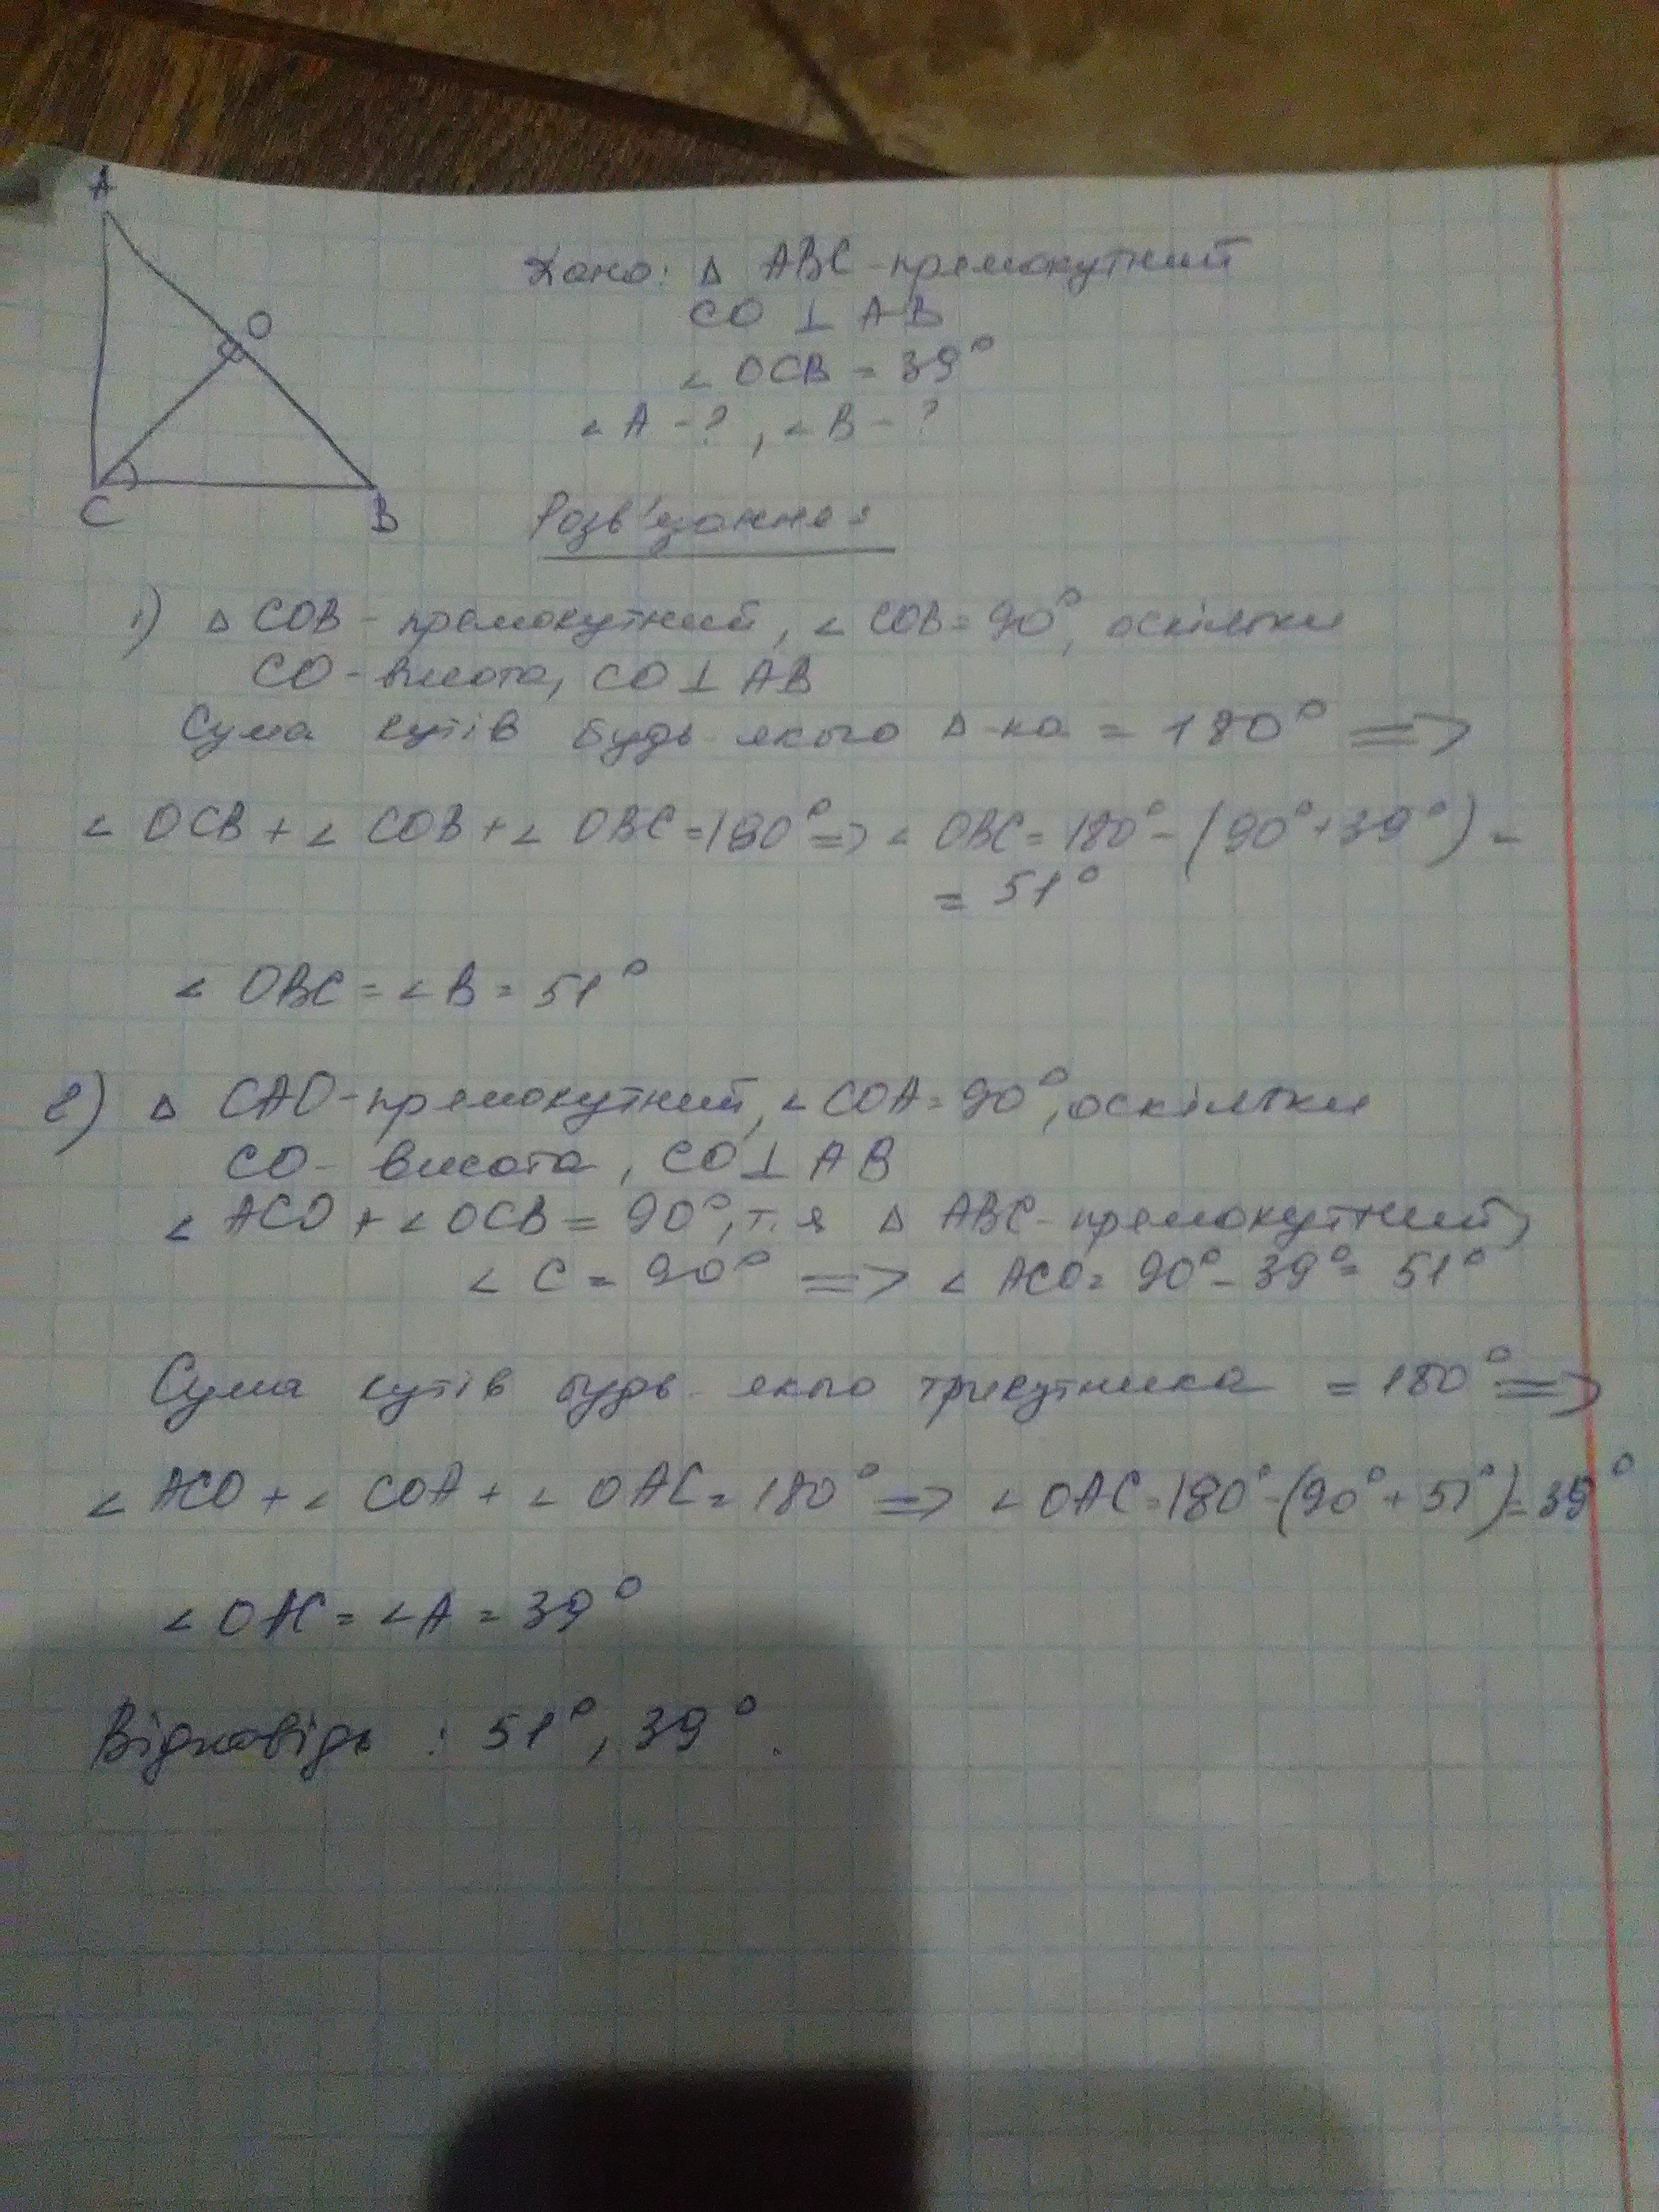 A
O
C
B
Дано: Δ ABC - прямокутний
CO ⊥ AB
∠ OCB = 39°
∠ A - ?, ∠ B - ?
Розв'язання:
1) Δ COB - прямокутний, ∠ COB = 90°, оскільки
CO - висота, CO ⊥ AB
Сума кутів будь-якого Δ-ка = 180° =>
∠ OCB + ∠ COB + ∠ OBC = 180° => ∠ OBC = 180° - (90° + 39°) =
= 51°
∠ OBC = ∠ B = 51°
2) Δ CAO - прямокутний, ∠ COA = 90°, оскільки
CO - висота, CO ⊥ AB
∠ ACO + ∠ OCB = 90°, т. я Δ ABC - прямокутний,
∠ C = 90° => ∠ ACO = 90° - 39° = 51°
Сума кутів будь-якого трикутника = 180° =>
∠ ACO + ∠ COA + ∠ OAC = 180° => ∠ OAC = 180° - (90° + 51°) = 39°
∠ OAC = ∠ A = 39°
Відповідь : 51°, 39°.